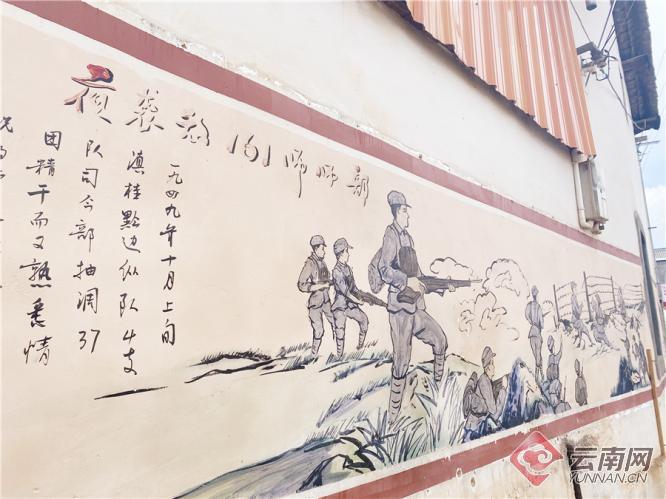 夜袭敌161师师部
一九四九年十月上旬
滇桂黔边纵队4支
队司令部抽调37
团精干而又熟悉情
云南网
YUNNAN.CN